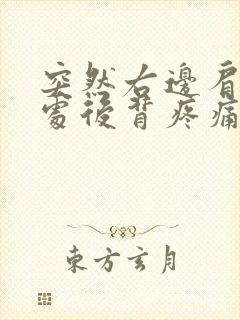 突然右邊肩
處後背疼痛
東方玄月